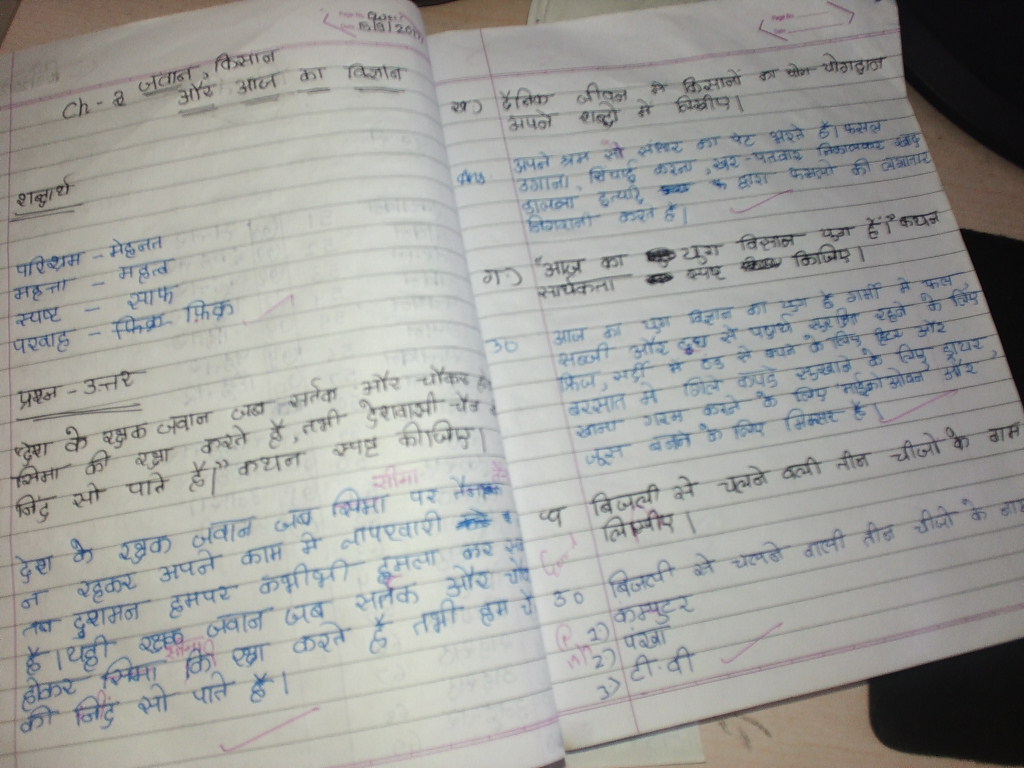 Ch-2 जवान, किसान
और आज का विज्ञान
शब्दार्थ
परिश्रम - मेहनत
महत्ता - महत्व
स्पष्ट - साफ
परवाह - फिक्र फ़िक्र
प्रश्न-उत्तर
देश के रक्षक जवान जब सर्तक और चौकन्ना
सिमा की रक्षा करते है, तभी देशवासी चैन
निंद सो पाते है।" कथन स्पष्ट कीजिए।
सीमा
देश के रक्षक जवान जब सिमा पर
न रहकर अपने काम मे लापरवारी
तब दुशमन हमपर कभीभी हमला कर
है। यही रक्षक जवान जब सर्तक और
होकर सिमा कि रक्षा करते है तभी हम
की निंद सो पाते है।
ख) दैनिक जीवन मे किसानों का योगदान
अपने शब्दो में लिखीए।
Ans अपने श्रम से संसार का पेट भरते है। फसल
उगाना, सिंचाई करना, खर-पतवार निकालकर खाद
डालना इत्यादि द्वारा फसलो की लगातार
निगरानी करते है।
ग) "आज का युग विज्ञान युग है।" कथन
सार्थकता स्पष्ट किजिए।
उ० आज का युग विज्ञान का युग है गर्मी मे फल,
सब्जी और दूध से पदार्थ सुरक्षित रखने के लिए
फ्रिज, सर्दी में ठंड से बचने के लिए हिटर और
बरसात मे गिले कपडे सुखाने के लिए ड्रायर,
खाना गरम करने के लिए माईक्रोओवन और
जूस बनाने के लिए मिक्सर है।
घ बिजली से चलने वाली तीन चीजो के नाम
लिखीए।
उ० बिजली से चलने वाली तीन चीजो के नाम
1) कम्प्युटर
2) पंखा
3) टी.वी